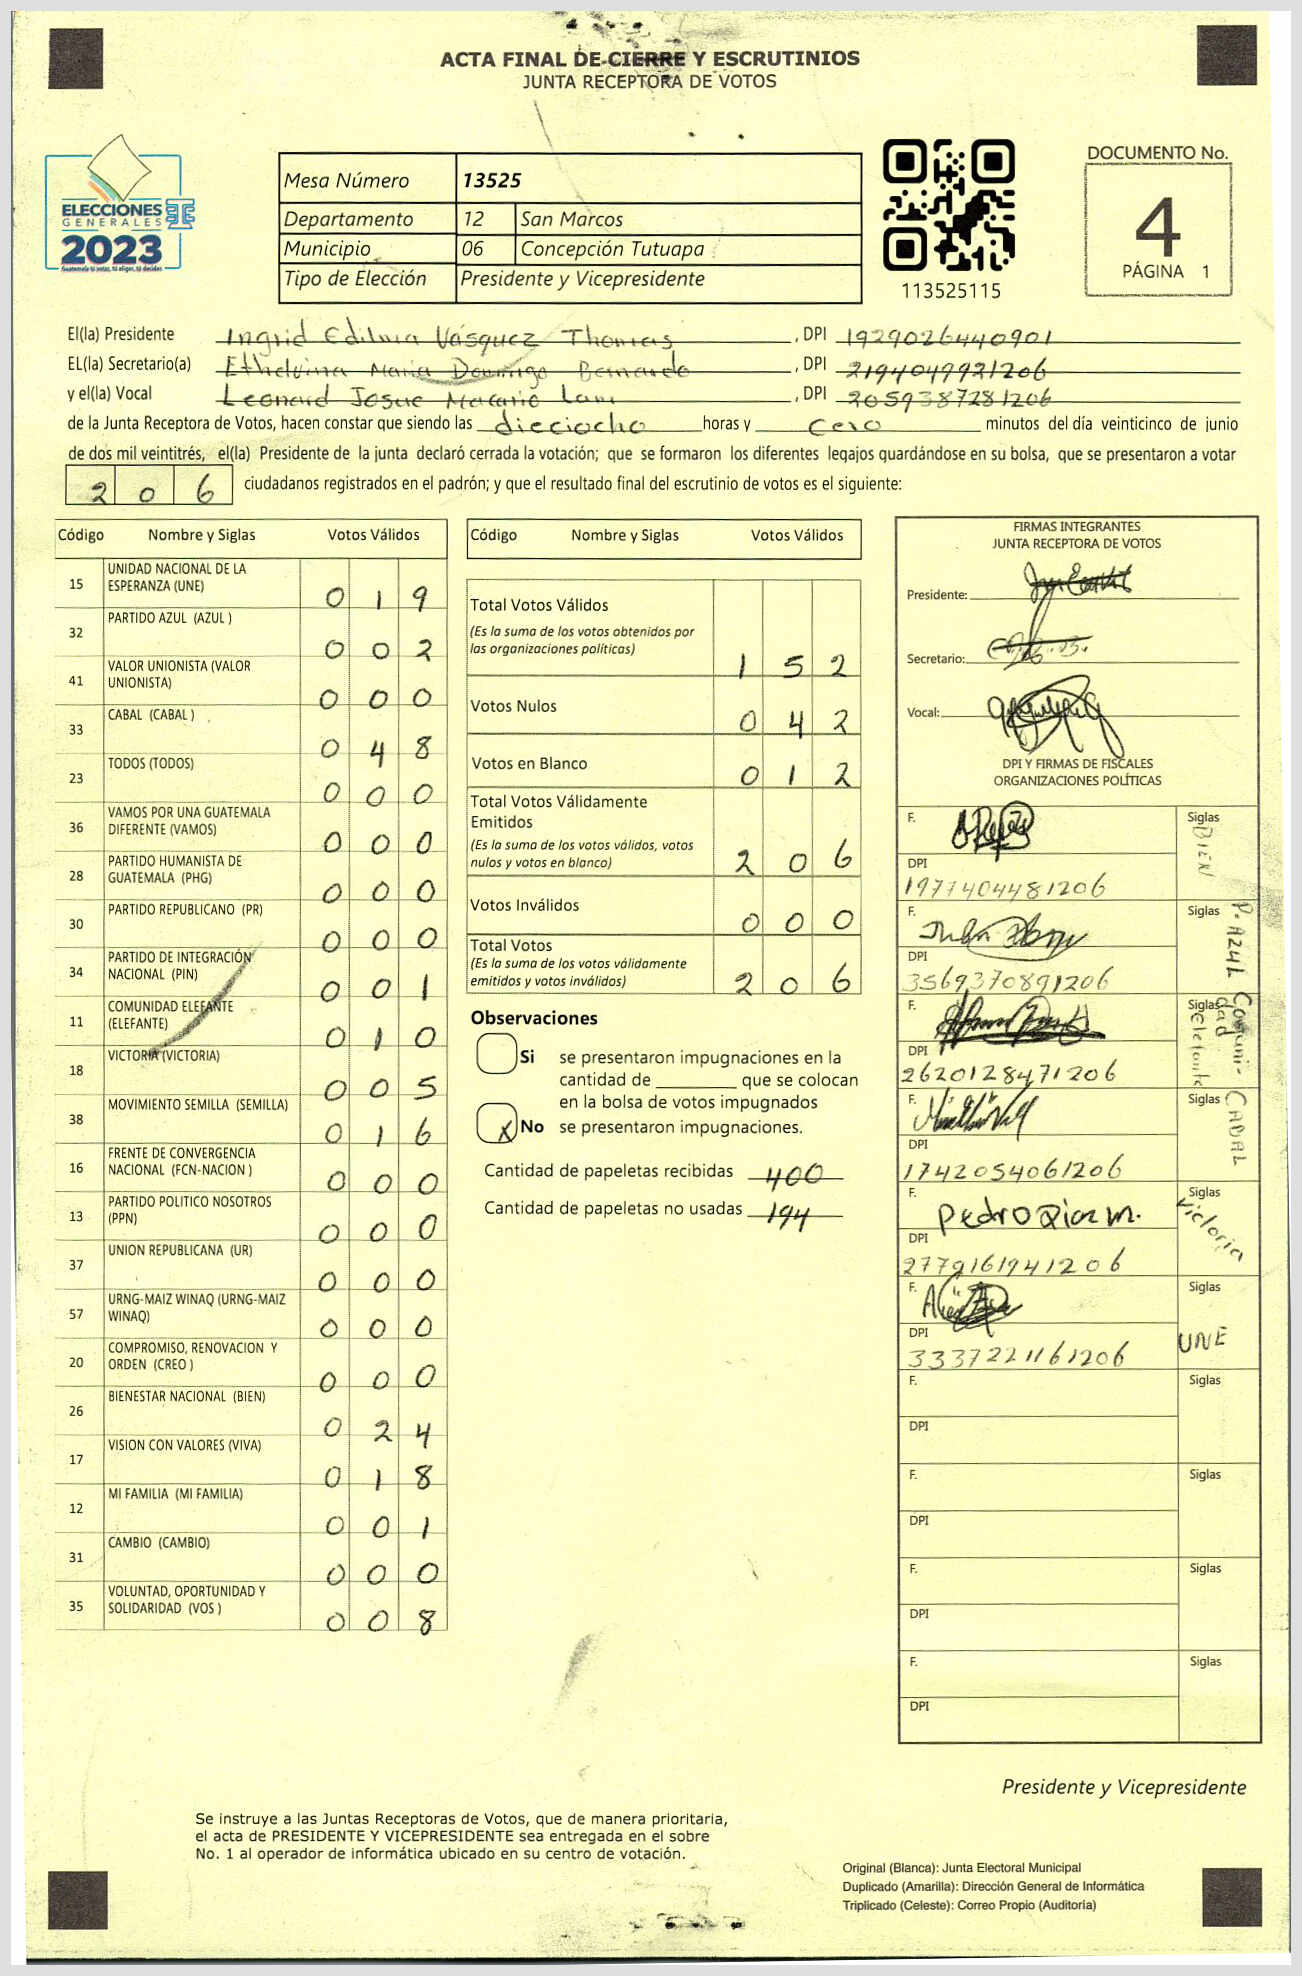 ACTA FINAL DE CIERRE Y ESCRUTINIOS
JUNTA RECEPTORA DE VOTOS
ELECCIONES
GENERALES
2023
Guatemala tú votas, tú eliges, tú decides
Mesa Número 13525
Departamento 12 San Marcos
Municipio 06 Concepción Tutuapa
Tipo de Elección Presidente y Vicepresidente
113525115
DOCUMENTO No.
4
PÁGINA 1
El(la) Presidente Ingrid Edilma Vásquez Thomas, DPI 1929026440901
EL(la) Secretario(a) Ethelvina Maria Domingo Bernardo, DPI 2194049921206
y el(la) Vocal Leonard Josue Macario Lam, DPI 2059387281206
de la Junta Receptora de Votos, hacen constar que siendo las dieciocho horas y cero minutos del día veinticinco de junio
de dos mil veintitrés, el(la) Presidente de la junta declaró cerrada la votación; que se formaron los diferentes legajos guardándose en su bolsa, que se presentaron a votar
206 ciudadanos registrados en el padrón; y que el resultado final del escrutinio de votos es el siguiente:
Código Nombre y Siglas Votos Válidos
15 UNIDAD NACIONAL DE LA
ESPERANZA (UNE) 0 1 9
32 PARTIDO AZUL (AZUL ) 0 0 2
41 VALOR UNIONISTA (VALOR
UNIONISTA) 0 0 0
33 CABAL (CABAL ) 0 4 8
23 TODOS (TODOS) 0 0 0
36 VAMOS POR UNA GUATEMALA
DIFERENTE (VAMOS) 0 0 0
28 PARTIDO HUMANISTA DE
GUATEMALA (PHG) 0 0 0
30 PARTIDO REPUBLICANO (PR) 0 0 0
34 PARTIDO DE INTEGRACIÓN
NACIONAL (PIN) 0 0 1
11 COMUNIDAD ELEFANTE
(ELEFANTE) 0 1 0
18 VICTORIA (VICTORIA) 0 0 5
38 MOVIMIENTO SEMILLA (SEMILLA) 0 1 6
16 FRENTE DE CONVERGENCIA
NACIONAL (FCN-NACION ) 0 0 0
13 PARTIDO POLITICO NOSOTROS
(PPN) 0 0 0
37 UNION REPUBLICANA (UR) 0 0 0
57 URNG-MAIZ WINAQ (URNG-MAIZ
WINAQ) 0 0 0
20 COMPROMISO, RENOVACION Y
ORDEN (CREO ) 0 0 0
26 BIENESTAR NACIONAL (BIEN) 0 2 4
17 VISION CON VALORES (VIVA) 0 1 8
12 MI FAMILIA (MI FAMILIA) 0 0 1
31 CAMBIO (CAMBIO) 0 0 0
35 VOLUNTAD, OPORTUNIDAD Y
SOLIDARIDAD (VOS ) 0 0 8
Código Nombre y Siglas Votos Válidos
Total Votos Válidos
(Es la suma de los votos obtenidos por
las organizaciones políticas) 1 5 2
Votos Nulos 0 4 2
Votos en Blanco 0 1 2
Total Votos Válidamente
Emitidos
(Es la suma de los votos válidos, votos
nulos y votos en blanco) 2 0 6
Votos Inválidos 0 0 0
Total Votos
(Es la suma de los votos válidamente
emitidos y votos inválidos) 2 0 6
Observaciones
Si se presentaron impugnaciones en la
cantidad de ________ que se colocan
en la bolsa de votos impugnados
X No se presentaron impugnaciones.
Cantidad de papeletas recibidas 400
Cantidad de papeletas no usadas 194
FIRMAS INTEGRANTES
JUNTA RECEPTORA DE VOTOS
Presidente:
Secretario:
Vocal:
DPI Y FIRMAS DE FISCALES
ORGANIZACIONES POLÍTICAS
F. Siglas BIEN
DPI
1977404481206
F. Siglas P. AZUL
DPI
3569370891206
F. Siglas Comunidad Elefante
DPI
2620128471206
F. Siglas CABAL
DPI
1742054061206
F. Pedro Diaz m. Siglas Victoria
DPI
2779161941206
F. Siglas UNE
DPI
3337221161206
F. Siglas
DPI
F. Siglas
DPI
F. Siglas
DPI
F. Siglas
DPI
Presidente y Vicepresidente
Se instruye a las Juntas Receptoras de Votos, que de manera prioritaria,
el acta de PRESIDENTE Y VICEPRESIDENTE sea entregada en el sobre
No. 1 al operador de informática ubicado en su centro de votación.
Original (Blanca): Junta Electoral Municipal
Duplicado (Amarilla): Dirección General de Informática
Triplicado (Celeste): Correo Propio (Auditoría)